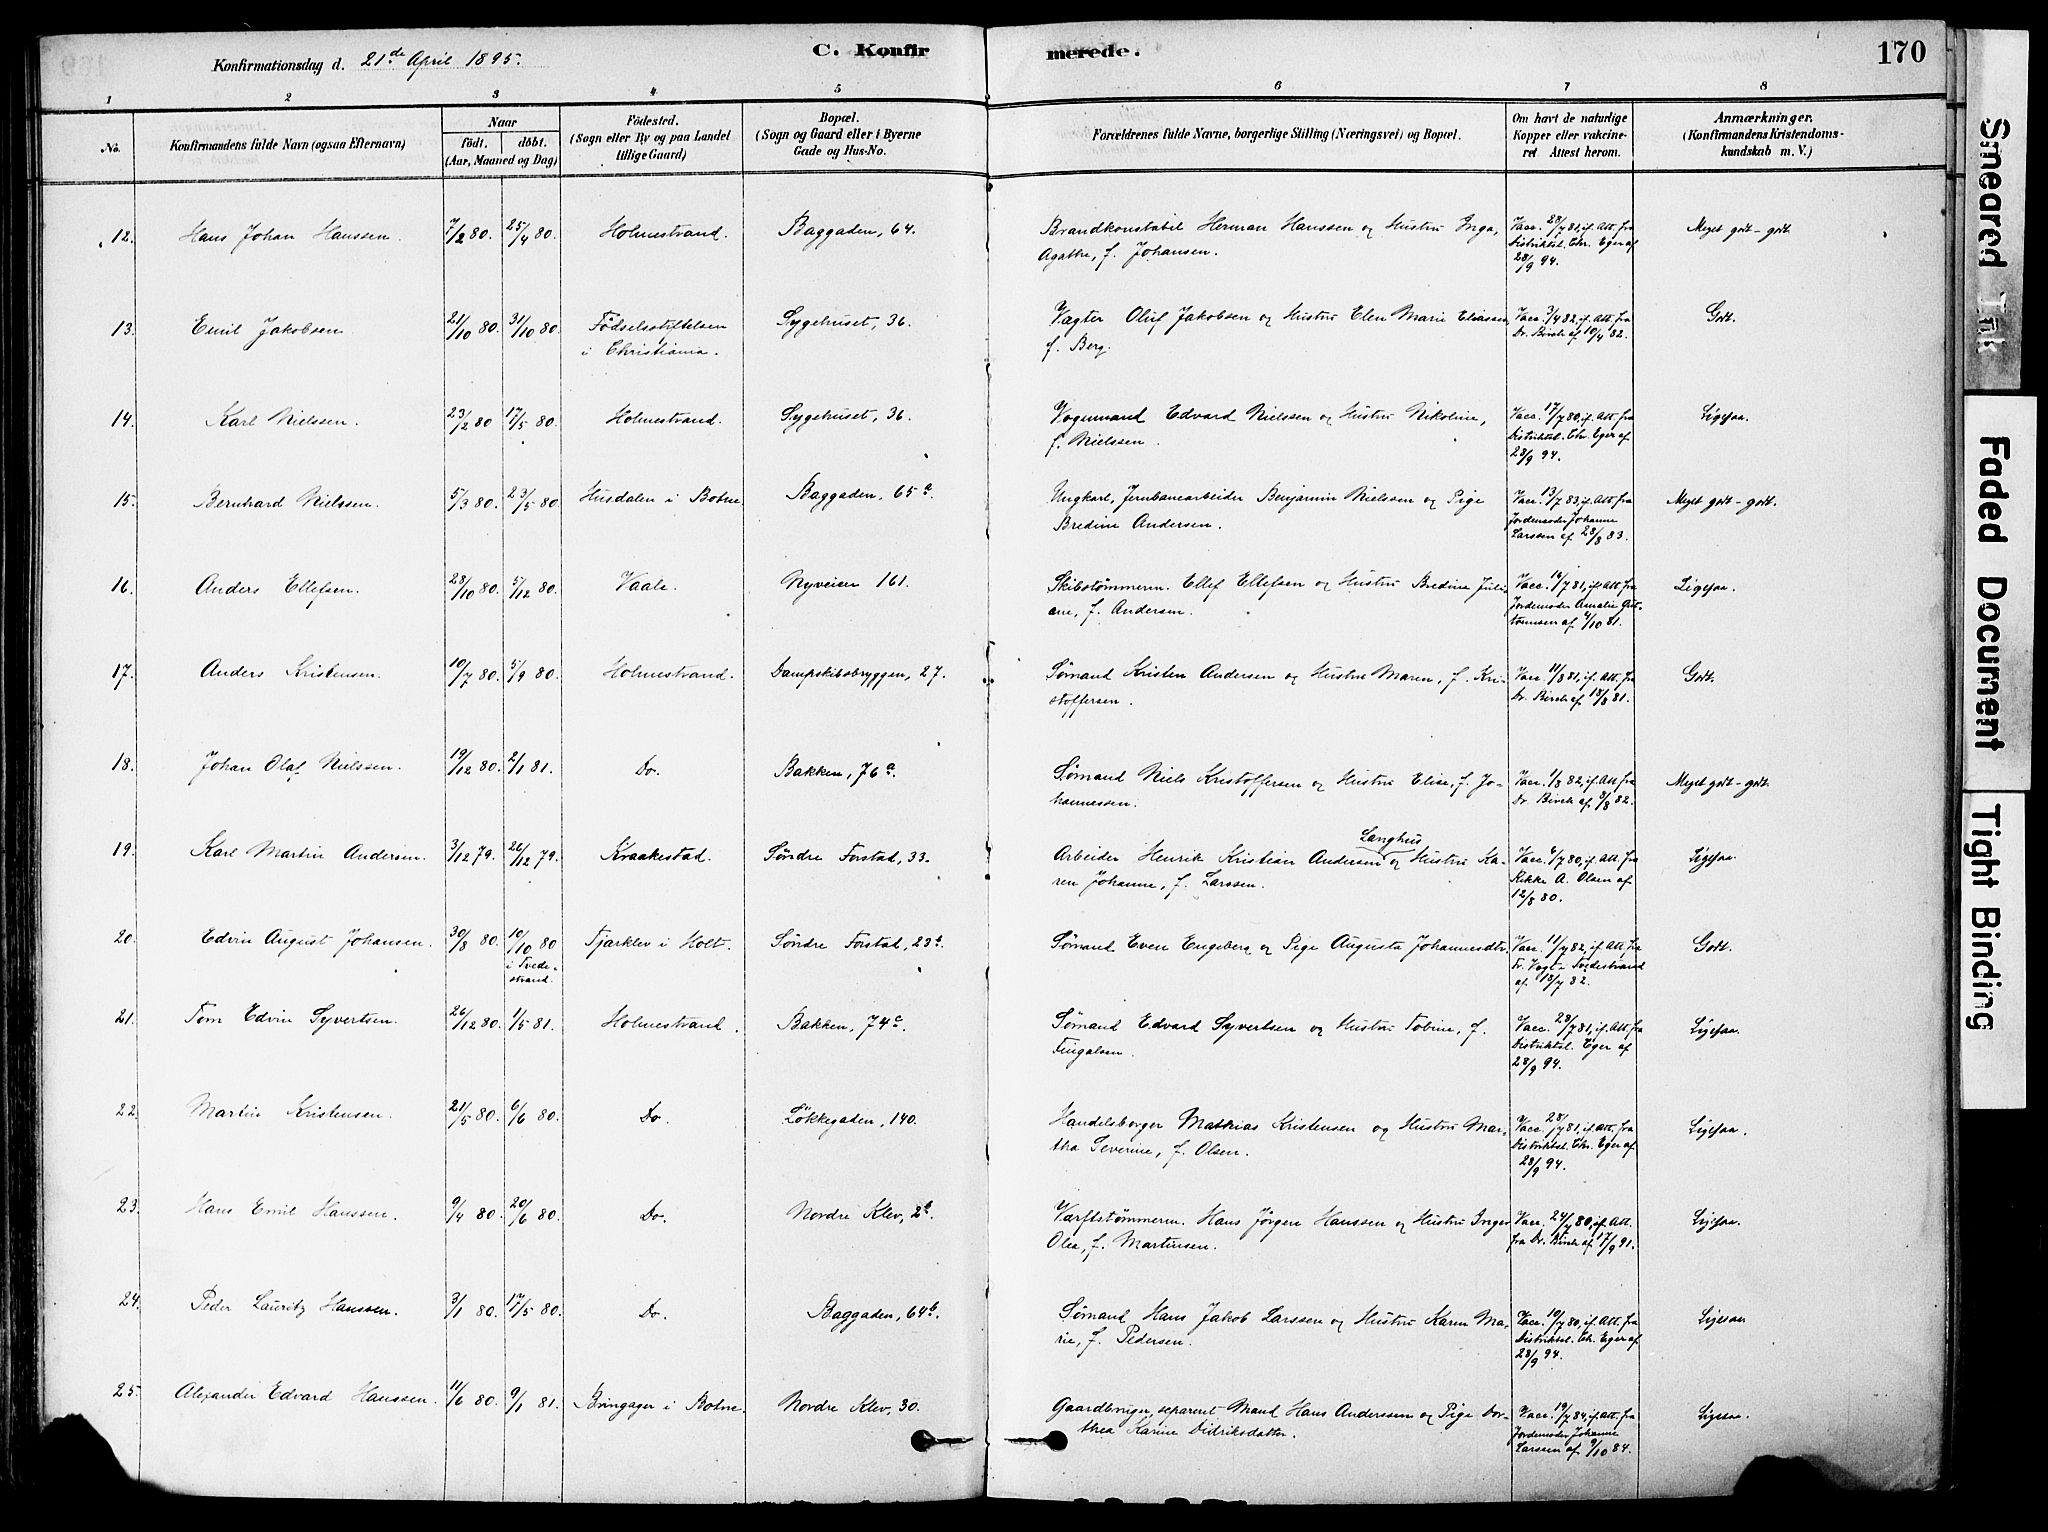 Konfirmationsdag d. 21de April 1895.
C. Konfirmerede.
170
1 2 3 4 5 6 7 8
No.
Konfirmandens fulde Navn (ogsaa Efternavn)
Naar
födt. döbt.
(Aar, Maaned og Dag)
Födested.
(Sogn eller By og paa Landet
tillige Gaard)
Bopæl.
(Sogn og Gaard eller i Byerne
Gade og Hus-No.
Forældrenes fulde Navne, borgerlige Stilling (Næringsvei) og Bopæl.
Om havt de naturlige
Kopper eller vakcine-
ret Attest herom.
Anmærkninger.
(Konfirmandens Kristendoms-
kundskab m. V.)
12. Hans Johan Hanssen. 7/2 80. 25/4 80. Holmestrand. Baggaden, 64. Brandkonstabel Herman Hanssen og Hustru Inga Vacc. 28/7 81, if. Att. fra Meget godt - godt.
Agathe, f. Johansen. Distriktsl. Chr. Eger af
28/9 94.
13. Emil Jakobsen 21/10 80. 31/10 80. Födselsstiftelsen Sygehuset, 36. Vægter Oluf Jakobsen og Hustru Elen Marie Eliassen, Vacc. 3/4 82, if. Att. fra Godt.
i Christiania. f. Berg. Dr. Birch af 10/4 82.
14. Karl Nielssen. 23/2 80 17/5 80. Holmestrand. Sygehuset, 36. Vognmand Edvard Nielssen og Hustru Nikoline, Vacc. 17/7 80, if. Att. fra Ligesaa.
f. Nielssen. Distriktsl. Chr. Eger af
28/9 94.
15. Bernhard Nielssen. 5/3 80. 23/5 80. Husdalen i Botne Baggaden, 65a. Ungkarl, Jernbanearbeider Benjamin Nielssen og Pige Vacc. 13/7 83, if. Att. fra Meget godt - godt.
Bredine Andersen. Jordemoder Johanne
Larssen af 28/8 83.
16. Anders Ellefsen. 28/10 80. 5/12 80. Vaale. Nyveien 161. Skibstømmerm. Ellef Ellefsen og Hustru Bredine Juli- Vacc. 14/7 81, if. Att. fra Ligesaa.
ane, f. Andersen. Jordemoder Amalie Gut-
tormsen af 4/10 81.
17. Anders Kristensen. 10/7 80. 5/9 80. Holmestrand. Dampskibsbryggen, 27. Sømand Kristen Andersen og Hustru Maren, f. Kri- Vacc. 11/8 81, if. Att. fra Godt.
stoffersen. Dr. Birch af 18/8 81.
18. Johan Olaf Nielssen. 19/12 80. 2/1 81. Do. Bakken, 76a. Sømand Niels Kristoffersen og Hustru Elise, f. Jo- Vacc. 1/8 82, if. Att. fra Meget godt - godt.
hannessen. Dr. Birch af 8/8 82.
19. Karl Martin Andersen. 3/12 79. 26/12 79. Kraakestad. Søndre Forstad, 33. Arbeider Henrik Kristian Andersen Langhus og Hustru Ka- Vacc. 6/7 80, if. Att. fra Ligesaa.
ren Johanne, f. Larssen. Rikke A. Olsen af
12/8 80.
20. Edvin August Johansen. 30/8 80. 10/10 80 Tjarklev i Holt. Søndre Forstad, 23a. Sømand Even Engeberg og Pige Augusta Johannesdtr. Vacc. 11/7 82, if. Att. fra Godt.
i Tvede- Fr. Vogt - Tvedestrand
strand. af 18/7 82.
21. Tom Edvin Syvertsen. 26/12 80. 1/5 81. Holmestrand. Bakken, 74c. Sømand Edvard Syvertsen og Hustru Tobine, f. Vacc. 28/7 81, if. Att. fra Ligesaa.
Fingalsen. Distriktsl. Eger af
28/9 94.
22. Martin Kristensen. 21/5 80. 6/6 80. Do. Løkkegaden, 140. Handelsborger Mathias Kristensen og Hustru Mar- Vacc. 28/7 81, if. Att. fra Ligesaa.
tha Severine, f. Olsen. Distriktsl. Chr. Eger af
28/9 94.
23. Hans Emil Hanssen. 9/4 80. 20/6 80. Do. Nordre Klev, 2b. Værftstømmerm. Hans Jørgen Hanssen og Hustru Inger Vacc. 24/7 80, if. Att. Ligesaa.
Olea, f. Martinsen. fra Dr. Birch af 17/9 91.
24. Peder Lauritz Hanssen. 3/1 80. 17/5 80. Do. Baggaden, 64b. Sømand Hans Jakob Larssen og Hustru Karen Ma- Vacc. 19/7 80, if. Att. fra Ligesaa
rie, f. Pedersen. Distriktsl. Chr. Eger af
28/9 94.
25. Alexander Edvard Hanssen. 11/6 80. 9/1 81. Bringager i Botne. Nordre Klev, 30. Gaardbruger, separeret Mand Hans Anderssen og Pige Dor- Vacc. 19/7 84, if. Att. fra Ligesaa.
thea Karine Didriksdatter. Jordemoder Johanne
Larssen af 9/10 84.
Smeared Ink
Faded Document
Tight Binding